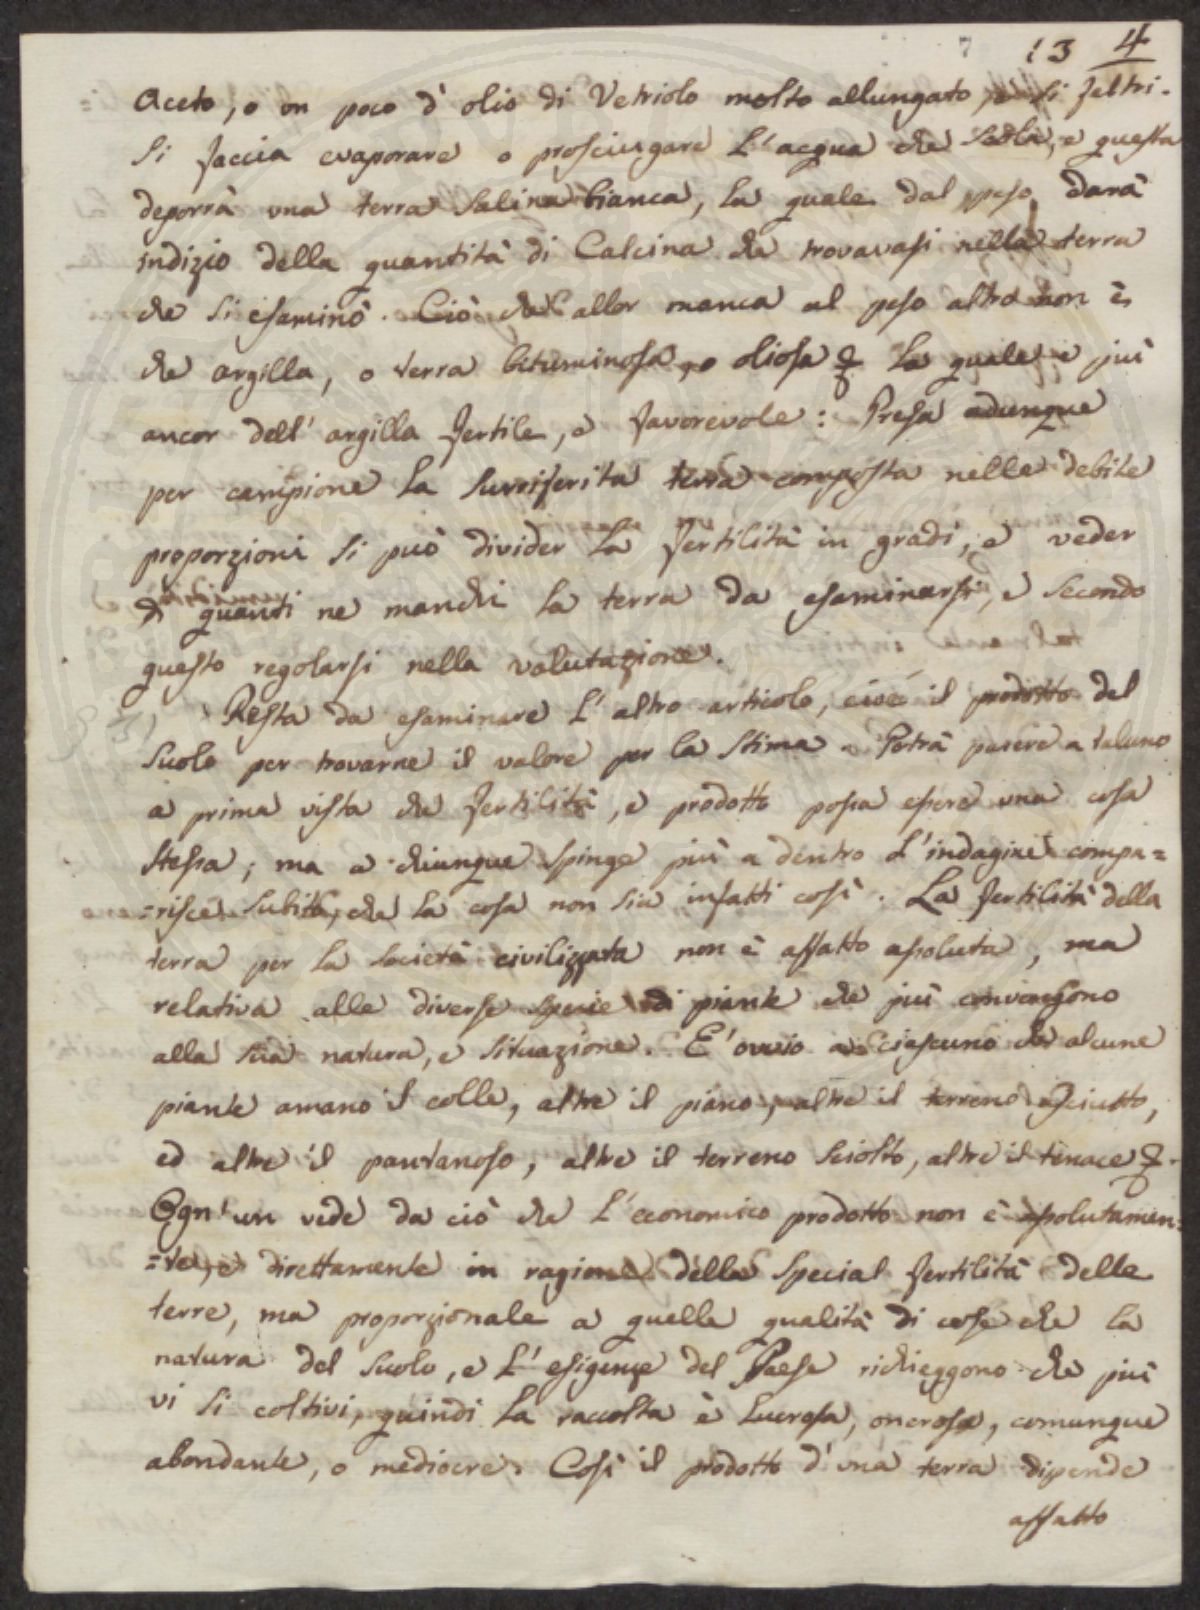 7 13 4
Aceto, o un poco d' olio di Vetriolo molto allungato, e si feltri.
Si faccia evaporare o prosciugare L'acqua che scola, e questa
deporrà una terra salina bianca, la quale dal peso darà
indizio della quantità di Calcina che trovavasi nella terra
che si esaminò. Ciò che allor manca al peso altro non è
che argilla, o terra bituminosa, o oliosa & la quale è più
ancor dell' argilla fertile, e favorevole: Presa adunque
per campione la surriferita terra composta nelle debite
proporzioni si può divider la fertilità in gradi, e veder
di quanti ne manchi la terra da esaminarsi, e secondo
questo regolarsi nella valutazione.
Resta da esaminare L' altro articolo, cioè il prodotto del
Suolo per trovarne il valore per la Stima. Potrà parere a taluno
a prima vista che fertilità, e prodotto possa essere una cosa
stessa; ma a chiunque spinge più a dentro L'indagine compa=
=risce subito, che la cosa non sia infatti così. La fertilità della
terra per la società civilizzata non è affatto assoluta, ma
relativa alle diverse specie di piante che più convengono
alla sua natura, e situazione. E' ovvio a ciascuno che alcune
piante amano il colle, altre il piano, altre il terreno asciutto,
ed altre il pantanoso, altre il terreno sciolto, altre il tenace &.
Ogn' un vede da ciò che L'economico prodotto non è assolutamen=
=te, e direttamente in ragione della special fertilità delle
terre, ma proporzionale a quelle qualità di cose che la
natura del suolo, e L' esigenze del Paese richieggono che più
vi si coltivi, quindi la raccolta è lucrosa, onerosa, comunque
abondante, o mediocre. Così il prodotto d' una terra dipende
affatto